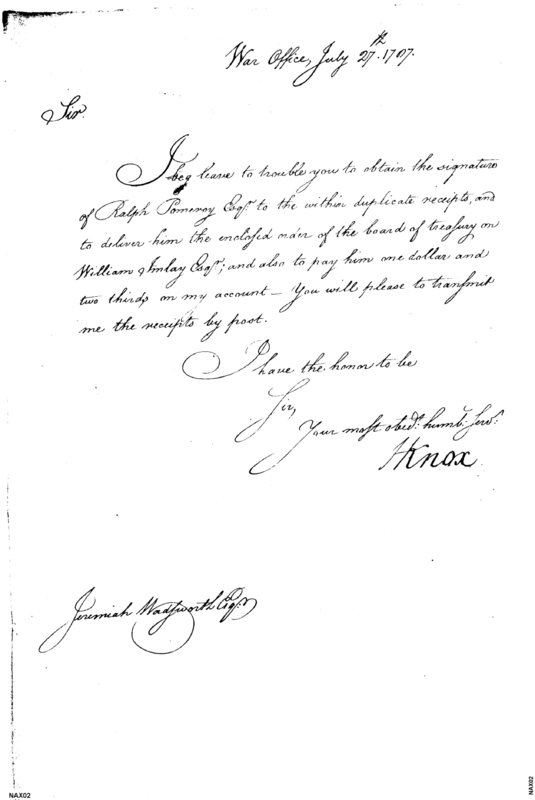 War Office, July 27th. 1787.
Sir.
I beg leave to trouble you to obtain the signature
of Ralph Pomeroy Esqr. to the within duplicate receipts, and
to deliver him the enclosed of the board of treasury on
William Imlay Esqr; and also to pay him one dollar and
two thirds on my account — You will please to transmit
me the receipts by post.
I have the honor to be
Sir,
Your most obedt. humbl. Servt.
HKnox
Jeremiah Wadsworth Esqr
NAX02
NAX02